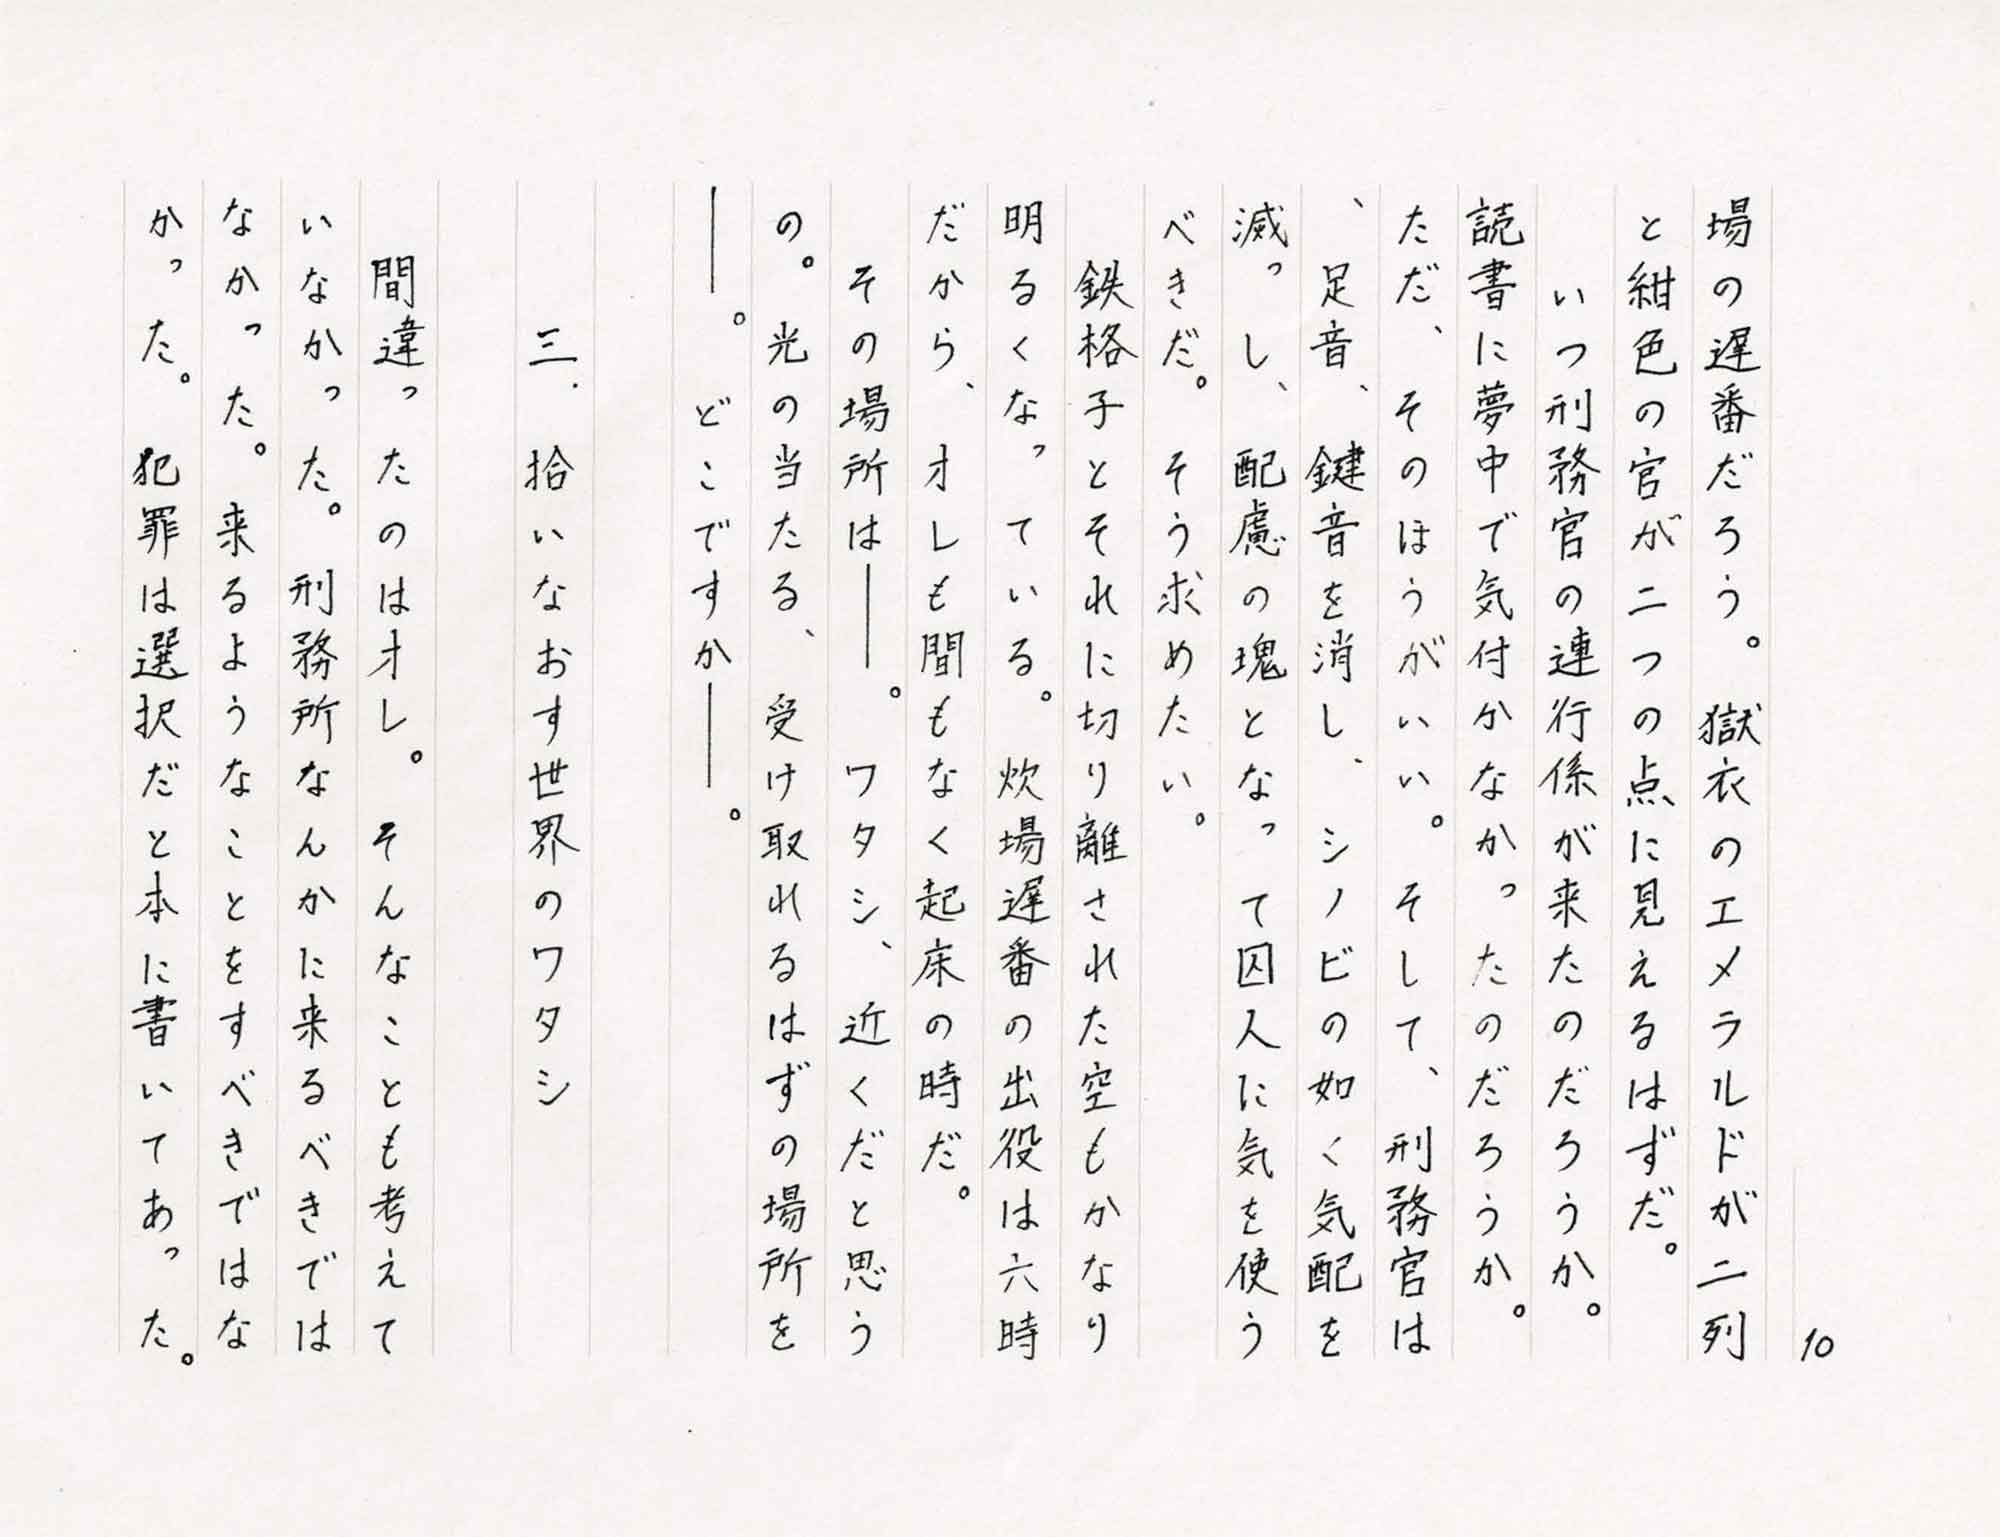 10
場の遅番だろう。獄衣のエメラルドが二列
と紺色の官が二つの点に見えるはずだ。
いつ刑務官の連行係が来たのだろうか。
読書に夢中で気付かなかったのだろうか。
ただ、そのほうがいい。そして、刑務官は
、足音、鍵音を消し、シノビの如く気配を
滅っし、配慮の塊となって囚人に気を使う
べきだ。そう求めたい。
鉄格子とそれに切り離された空もかなり
明るくなっている。炊場遅番の出役は六時
だから、オレも間もなく起床の時だ。
その場所は――。ワタシ、近くだと思う
の。光の当たる、受け取れるはずの場所を
――。どこですか――。
三.拾いなおす世界のワタシ
間違ったのはオレ。そんなことも考えて
いなかった。刑務所なんかに来るべきでは
なかった。来るようなことをすべきではな
かった。犯罪は選択だと本に書いてあった。